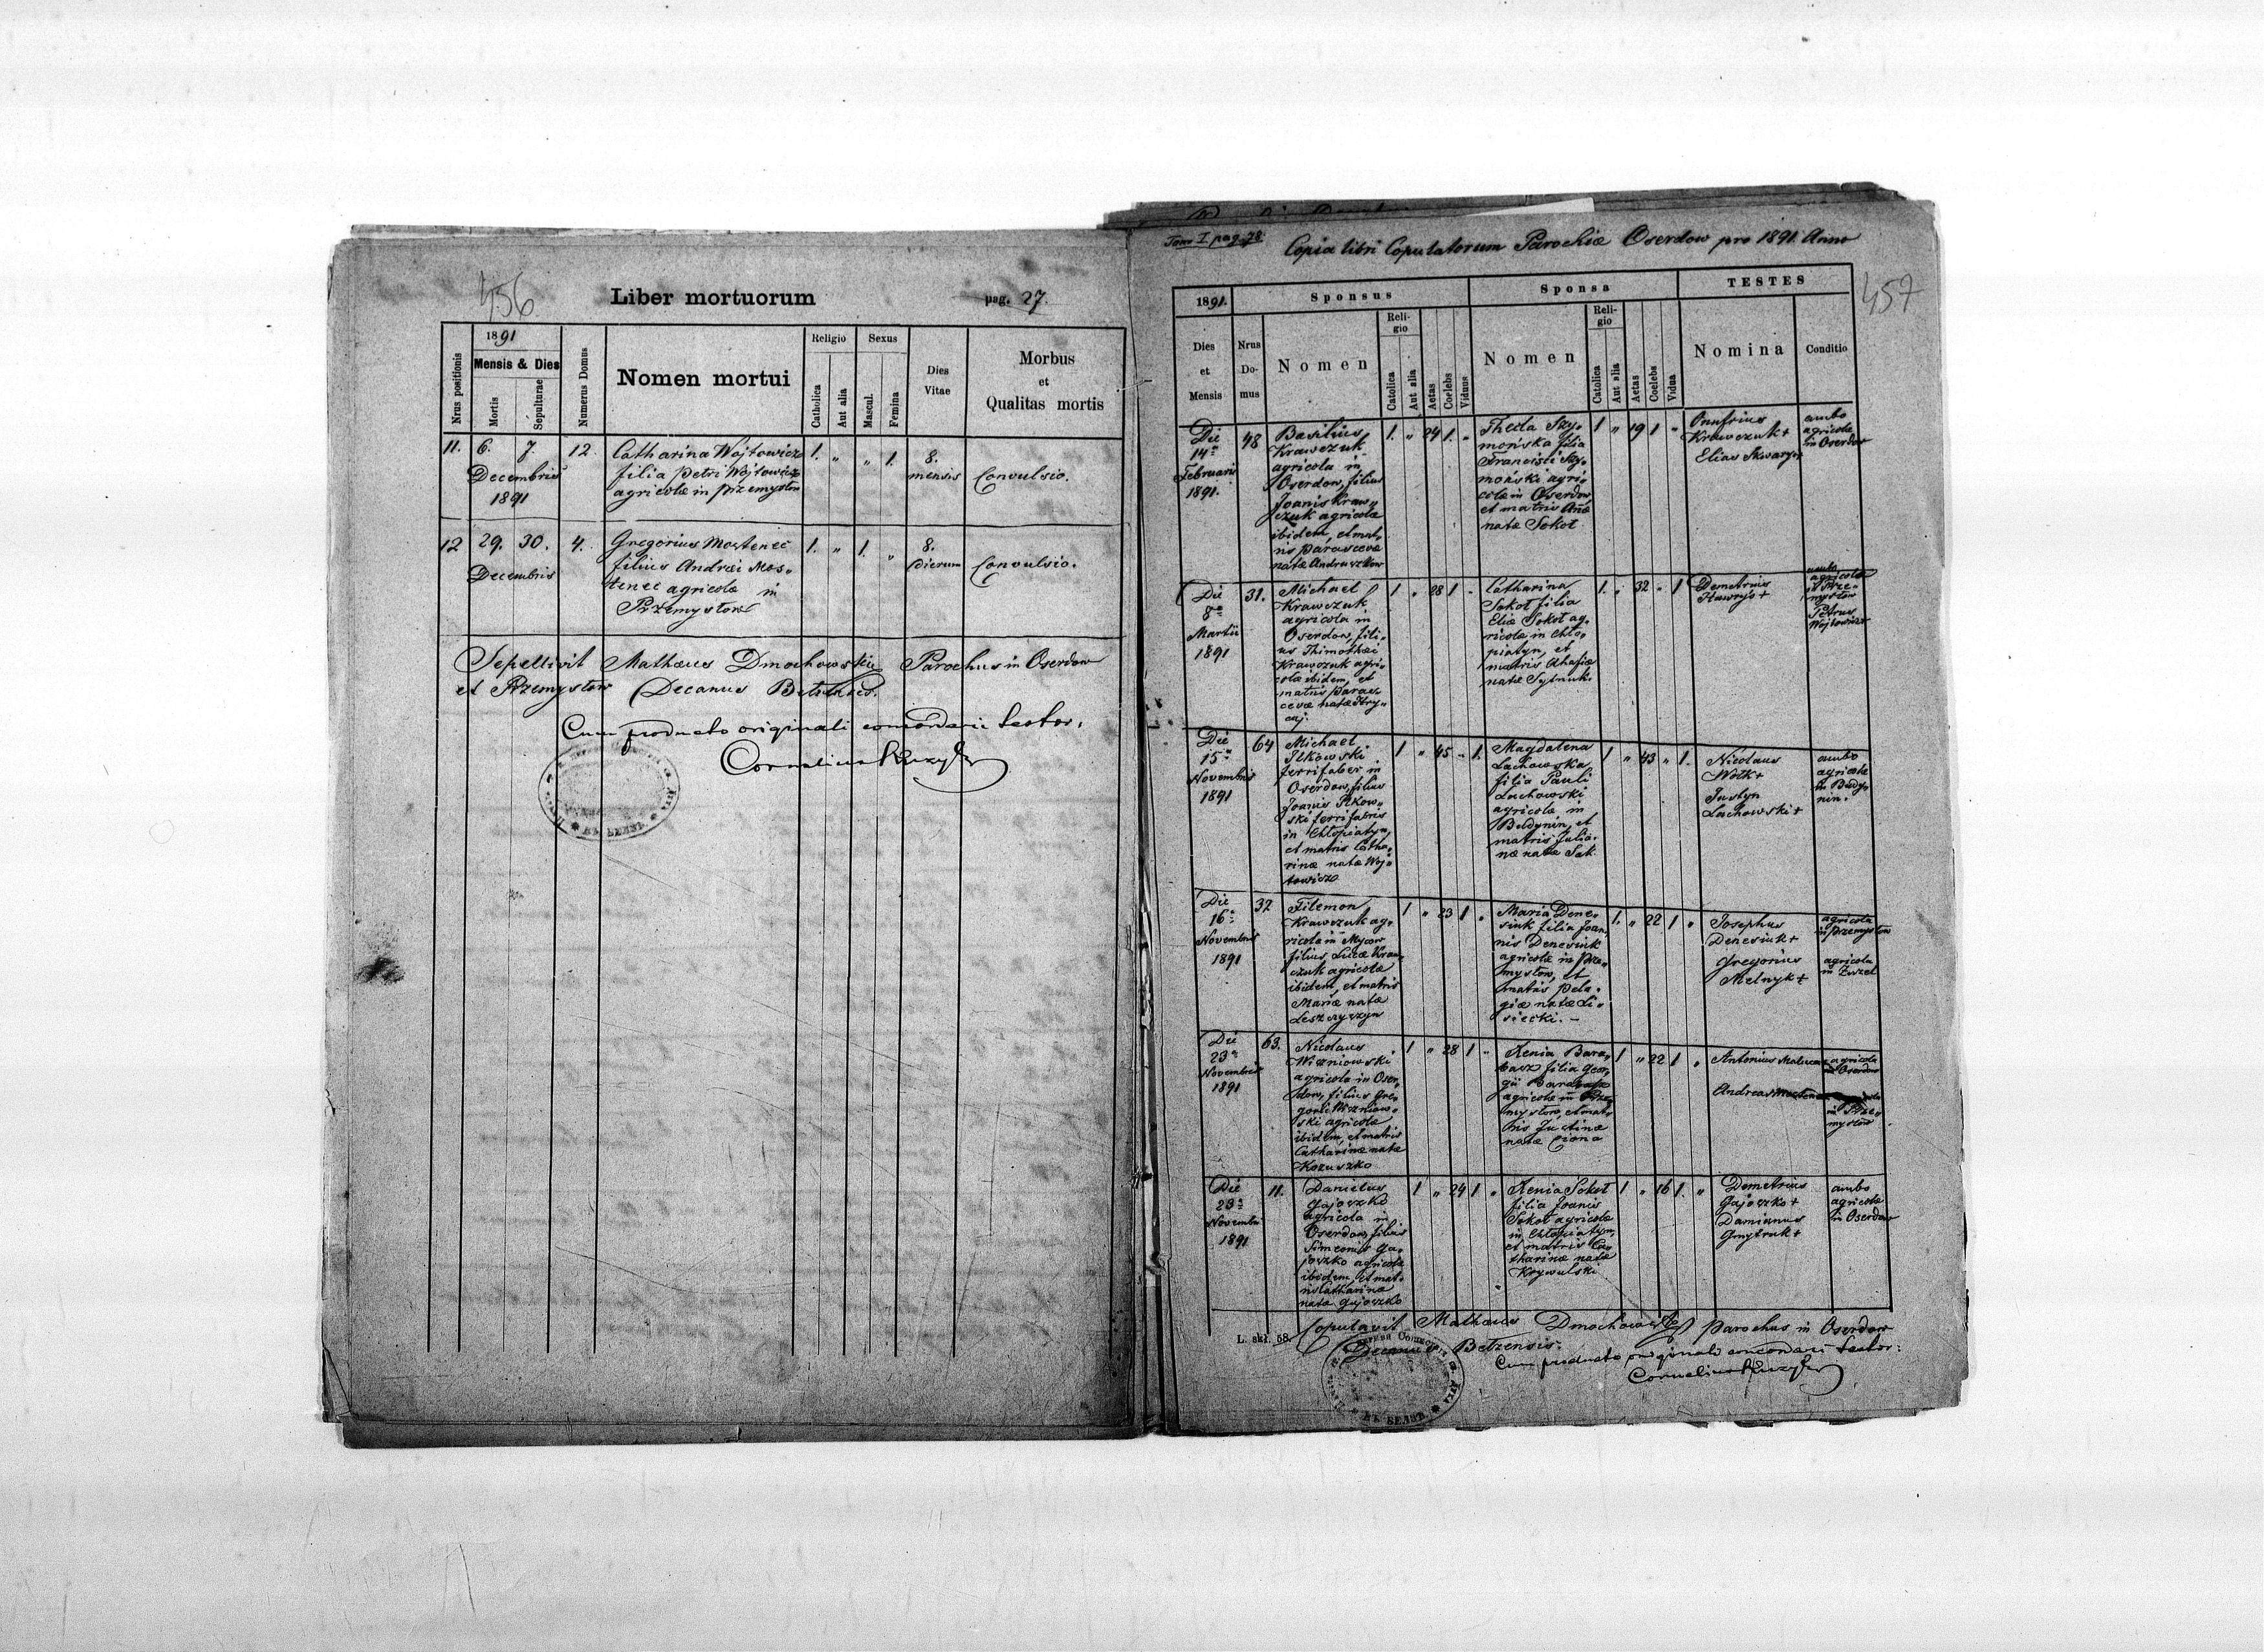 456
Liber mortuorum
pag. 27
Nrus positionis
1891
Mensis & Dies
Mortis
Sepulturae
Numerus Domus
Nomen mortui
Religio
Catholica
Aut alia
Sexus
Mascul.
Femina
Dies
Vitae
Morbus
et
Qualitas mortis
11. 6. 7. 12 Catharina Wojtowicz 1. " " 1. 8.
Decembris filia Petri Wojtowicz mensis Convulsio.
1891 agricolæ in Przemysłow
12 29. 30. 4. Gregorius Mostenec 1. " 1. " 8.
Decembris filius Andreæ Mos- dierum Convulsio.
tenec agricolæ in
Przemysłow
Sepelivit Mathæus Dmochowski Parochus in Oserdow
et Przemysłow Decanus
Cum producto originali concordare testor.
Cornelius
ВЪ БЕЛЗѢ
Tom I pag. 78
Copia libri Copulatorum Parochiæ Oserdow pro 1891 Anno
457
1891.
Sponsus
Sponsa
TESTES
Dies
et
Mensis
Nrus
Do-
mus
Nomen
Reli-
gio
Catolica
Aut alia
Aetas
Coelebs
Viduus
Nomen
Reli-
gio
Catolica
Aut alia
Aetas
Coelebs
Vidua
Nomina
Conditio
Die
14a
Februarii
1891.
48
Basilius
Krawczuk
agricola in
Oserdow, filius
Joanis Kraw-
czuk agricolæ
ibidem, et mat-
ris Parascevæ
natæ Andruszkow
1. " 24 1. "
Thecla Szy-
mońska filia
Francisci Szy-
moński agri-
colæ in Oserdow
et matris Annæ
natæ Sokoł
1 " 19 1 "
Onufrius
Krawczuk+
Elias Skwaryn
ambo
agricolæ
in Oserdow
Die
8a
Martii
1891
31.
Michael
Krawczuk
agricola in
Oserdow, fili-
us Thimothæi
Krawczuk agri-
colæ ibidem, et
matris Paras-
cevæ natæ Hry-
caj.
1 " 28 1 "
Catharina
Sokoł filia
Eliæ Sokoł ag-
ricolæ in Chło-
piatyn, et
matris
natæ
1. " 32 " 1
Demetrius
Hawryś+
ambo
agricolæ
in Prze-
mysłow
Petrus
Wojtowicz+
Die
15a
Novembris
1891
64
Michael
Ilkowski
ferrifaber in
Oserdow, filius
Joanis Ilkow-
ski ferrifabris
in Chłopiatyn,
et matris Catha-
rinæ natæ Woj-
towicz
1 " 45 " 1.
Magdalena
Lachowska
filia Pauli
Lachowski
agricolæ in
Budynin, et
matris Julia-
næ natæ Sak.
1 " 43 " 1.
Nicolaus
Wołk+
Justyn
Lachowski+
ambo
agricolæ
in Budy-
nin.
Die
16a
Novembris
1891
32
Filemon
Krawczuk ag-
ricola in Mycow
filius Lucæ Kraw-
czuk agricolæ
ibidem, et matris
Mariæ natæ
Leszczyszyn
1 " 23 1 "
Maria Dene-
siuk filia Joan-
nis Denesiuk
agricolæ in Prze-
mysłow, et
matris Pela-
giæ natæ Li-
siecki. -
1. " 22 1 "
Josephus
Denesiuk+
Gregorius
Melnyk+
agricola
in Przemysłow
agricola
in
Die
23a
Novembris
1891
63.
Nicolaus
Wiszniowski
agricola in Oser-
dow, filius Gre-
gorii Wiszniow-
ski agricolæ
ibidem, et matris
Catharinæ natæ
Kozuszko
1 " 28 1 "
Xenia Bara-
basz filia Geor-
gii Barabasz
agricolæ in Prze-
mysłow, et mat-
ris Justinæ
natæ
1 " 22 1 "
Antonius
agricola
in Oserdow
Andreas
in Prze-
mysłow
Die
23a
Novembris
1891
11.
Danielus
Gajoszko
agricola in
Oserdow, filius
Simeonis Ga-
joszko agricolæ
ibidem, et mat-
ris Catharinæ
natæ Gajoszko
1 " 24 1 "
Xenia Sokoł
filia Joanis
Sokoł agricolæ
in Chłopiatyn,
et matris Ca-
tharinæ natæ
Krywulski
1 " 16 1. "
Demetrius
Gajoszko+
Damianus
Gmytruk+
ambo
agricolæ
in Oserdow
L. skł. 58.
Copulavit Mathæus Dmochowski Parochus in Oserdow
Decanus Bełzensis.
Cum producto originali concordari testor:
Cornelius
ВЪ БЕЛЗѢ